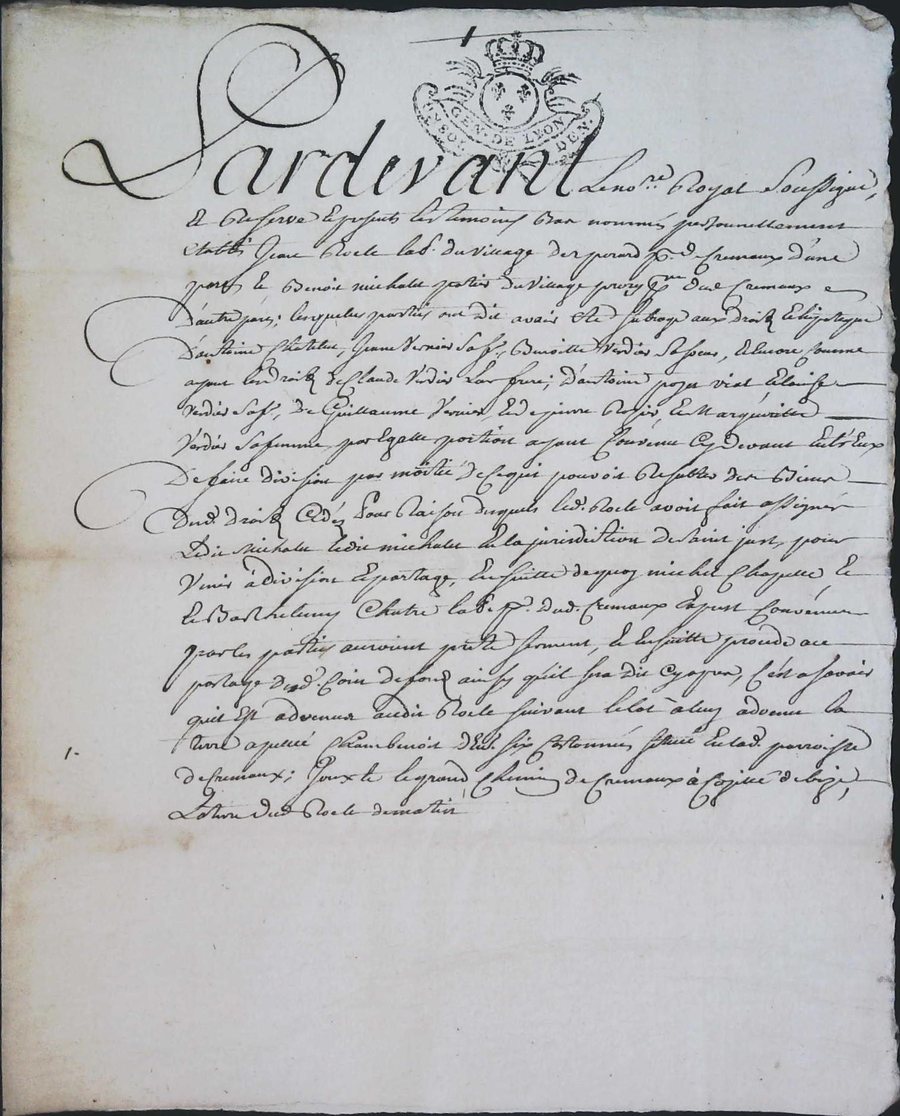 GEN. DE LYON
Pardevant Le no.re Royal Soussigné,
Et Reservé & presents les temoins Bas nommés personnellement
établis Jean Rocle lab. du village des perard p.e de Cremaux d'une
part & Benoit michalet du village p.sse dud Cremaux
D'autre part; lesquelles parties ont dit avoir été subrogé aux droits & hipoteque
D'antoine Chatelus, Jeanne Verdier Sa f., Benoitte Verdier Sa soeur, & Encore Comme
ayant les Droits De Claude Verdier Leur frere; D'antoine
Verdier Sa f., De Guillaume Verdier & de pierre & Margueritte
Verdier Sa femme, par Egalle portion ayant Convenu Cy devant Entr'Eux
De faire division par moitié De Ce qui pouvoit Resulter des Biens
Dud. droits Cedés Pour Raison desquels led. Rocle avoit fait assigner
Ledit Michalet ledit michalet En la jurisdiction de Saint just, pour
Venir à division & partage, En suitte de quoy michel Chapelle &
& Barthelemy Chatre lab. p. dud. Cremaux Expert Convenus
par les parties auroient prêté serment, & Ensuitte procedé au
partage Dud. Coin de fond ainsy qu'il sera dit Cy apres, C'est a savoir
qu'il Est advenu audit Rocle suivant le lot a luy advenu la
terre apellée Chambenoit d'Env. six Cartonnés située En lad. parroisse
de Cremaux; Jouxte le grand Chemin de Cremaux à de bize,
La terre dud Rocle de matin
1.